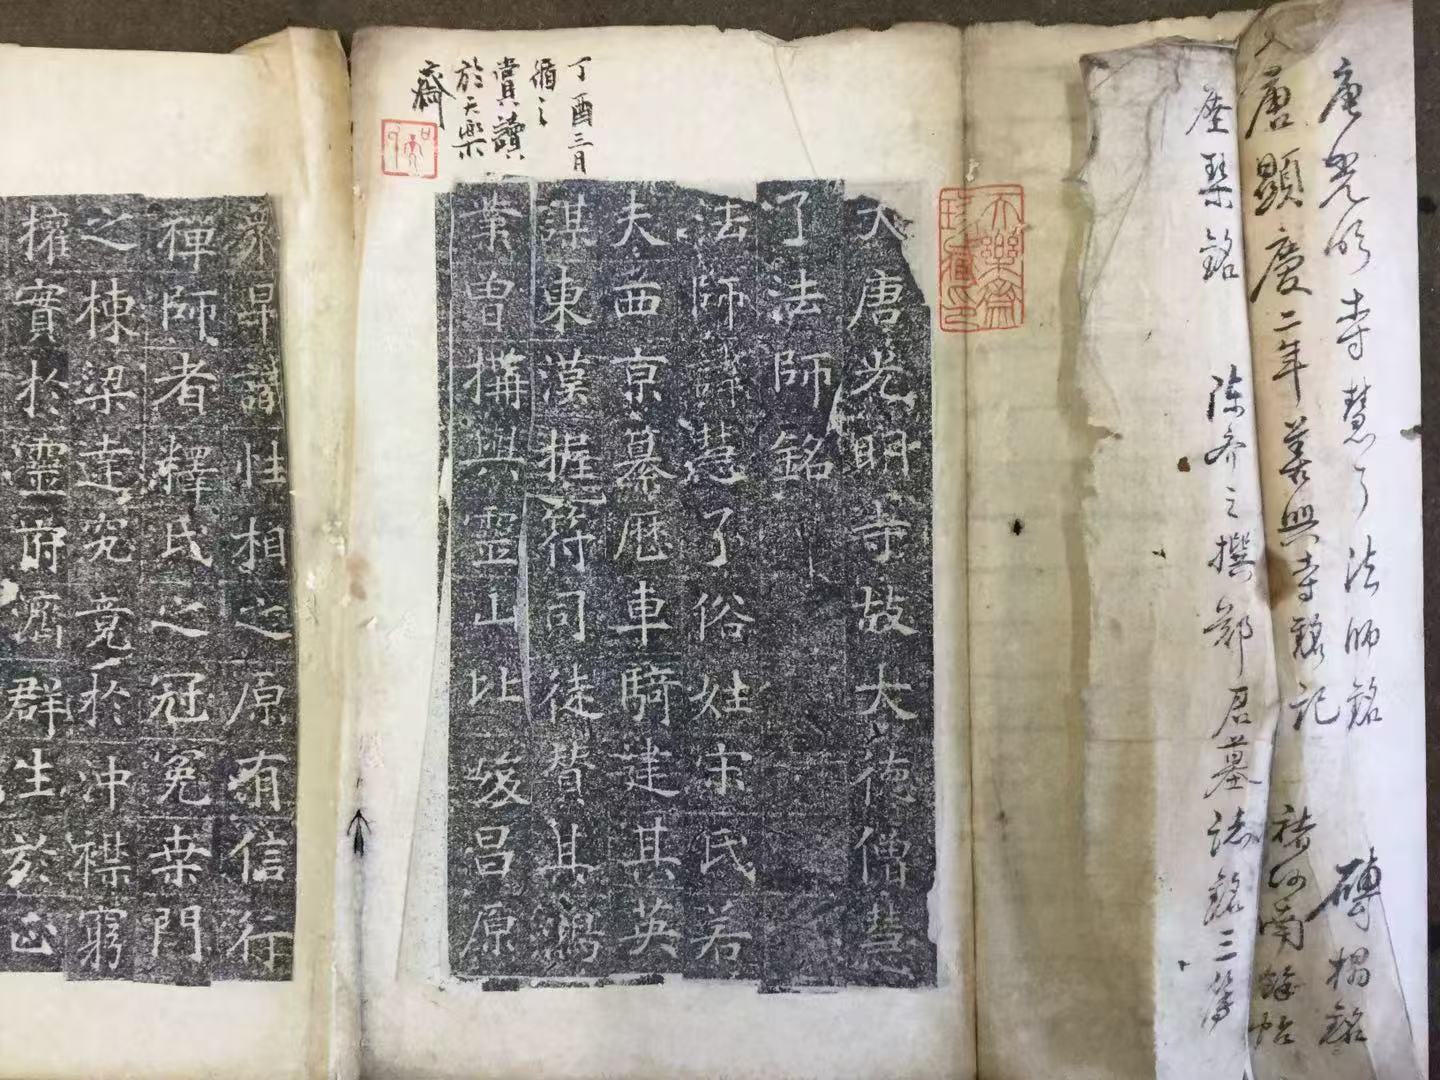 唐光明寺慧了法師銘 磚搨銘
又唐顯慶二年善興寺 記 褚河南
座琴銘 陳介之撰鄭君墓誌銘三等
天樂齋
大唐光明寺故大德僧慧
了法師銘
法師諱慧了俗姓宋氏若
夫西京纂曆車騎建其英
謀東漢握符司徒贊其鴻
業曾構與靈山比峻昌原
丁酉三月
循之
賞讀
於天樂
齋
昇 性相之原有信行
禪師者釋氏之冠冕桒門
之棟梁達究竟於冲襟窮
權實於靈府濟群生於正